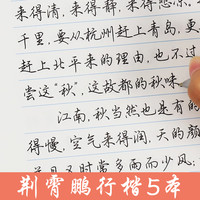 来得清，来得静，来得悲凉。
千里，要从杭州赶上青岛，更
赶上北平来的理由，也不过
尝这"秋"，这故都的秋味
江南，秋当然也是有的
得慢，空气来得润，天的颜
且又时常多雨而少风；
荆霄鹏行楷5本